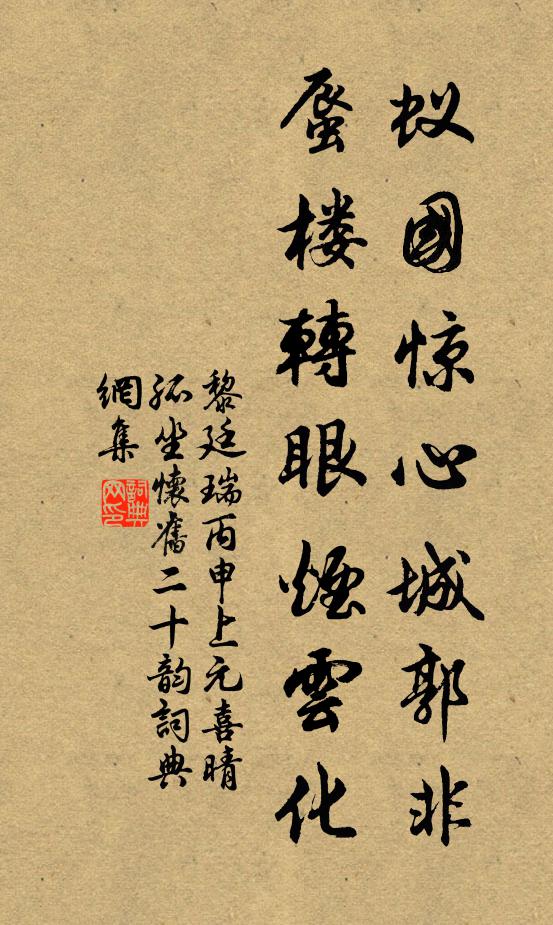 蚁國惊心城郭非
蜃楼轉眼煙雲化
黎廷瑞丙申上元喜晴
孤坐懷舊二十韵詞典
網集
詞典
网印